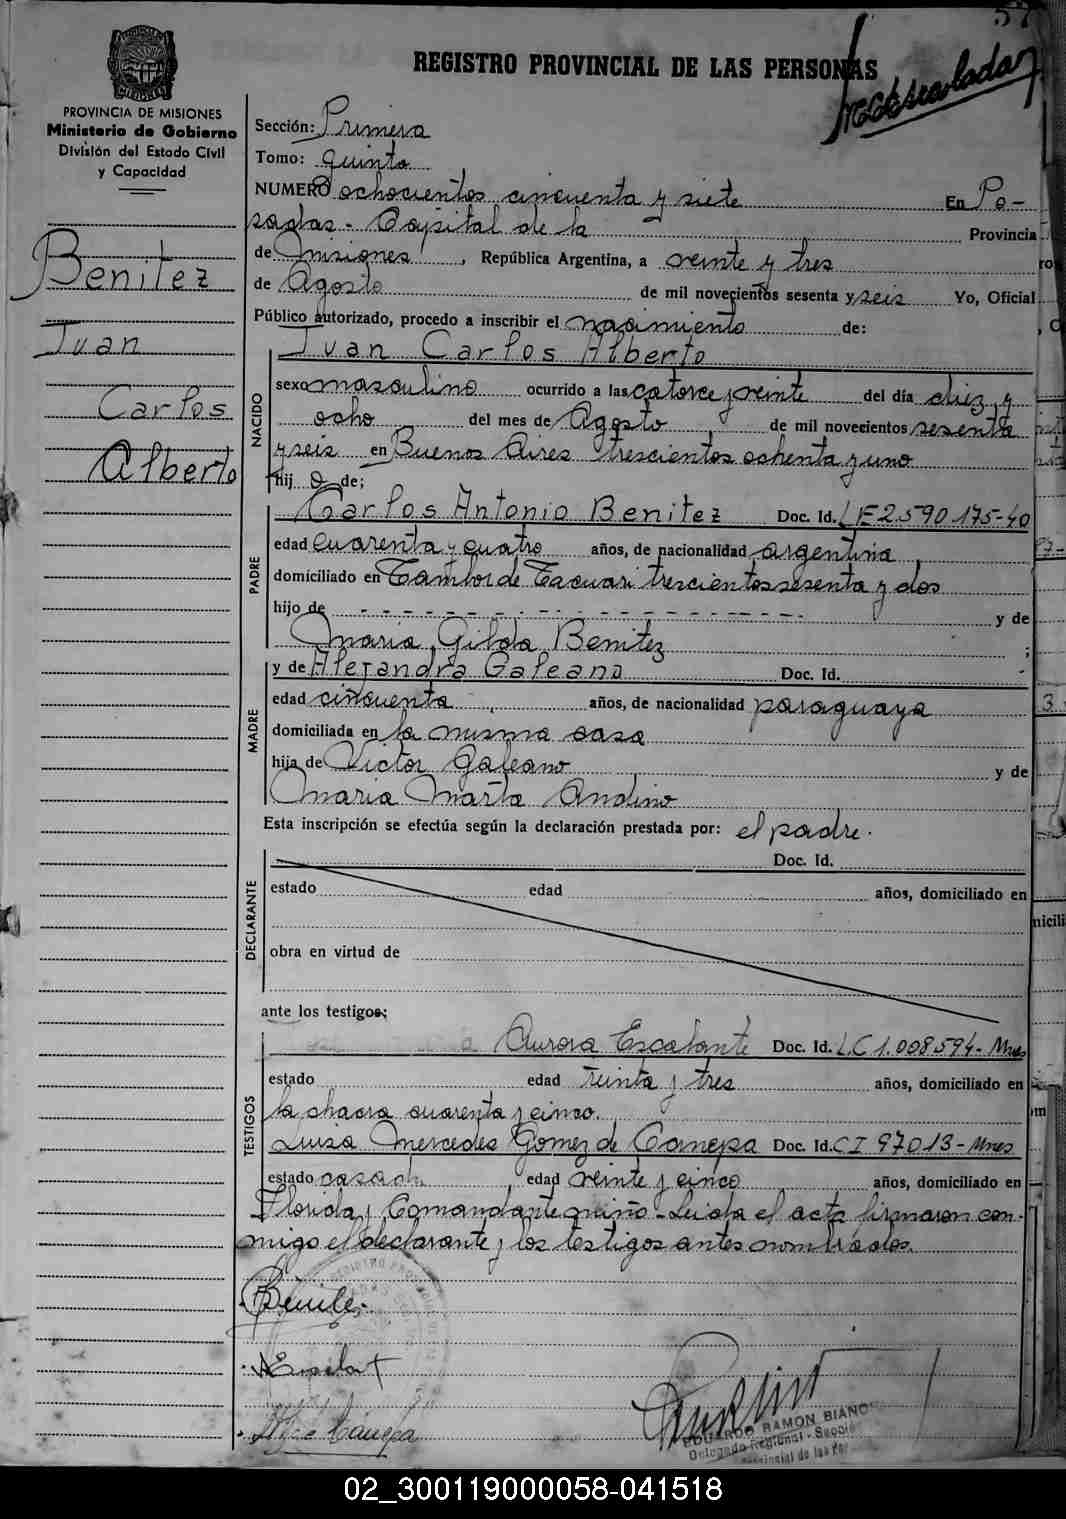 57
REGISTRO PROVINCIAL DE LAS PERSONAS
PROVINCIA DE MISIONES
Ministerio de Gobierno
División del Estado Civil
y Capacidad
Benitez
Juan
Carlos
Alberto
Sección: Primera
Tomo: quinto
NUMERO ochocientos cincuenta y siete En Po-
sadas - Capital de la Provincia
de Misiones, República Argentina, a veinte y tres
de Agosto de mil novecientos sesenta y seis Yo, Oficial
Público autorizado, procedo a inscribir el nacimiento de:
Juan Carlos Alberto
NACIDO
sexo masculino ocurrido a las catorce y veinte del día diez y
ocho del mes de Agosto de mil novecientos sesenta
y seis en Buenos Aires trescientos ochenta y uno
hij o de;
PADRE
Carlos Antonio Benitez Doc. Id. LE 2.590.175-40
edad cuarenta y cuatro años, de nacionalidad argentina
domiciliado en Tambor de Tacuari trescientos sesenta y dos
hijo de - - - - - - - - - - - - - - - - - y de
Maria Gilda Benitez ;
MADRE
y de Alejandra Galeano Doc. Id.
edad cincuenta años, de nacionalidad paraguaya
domiciliada en la misma casa
hija de Victor Galeano y de
Maria Marta Andino
Esta inscripción se efectúa según la declaración prestada por: el padre.
DECLARANTE
Doc. Id.
estado edad años, domiciliado en
obra en virtud de
ante los testigos;
TESTIGOS
Aurora Escalante Doc. Id. L.C 1.008.594- Mnes
estado edad treinta y tres años, domiciliado en
la chacra cuarenta y cinco.
Luisa Mercedes Gomez de Canepa Doc. Id. C I 97013- Mnes
estado casada edad veinte y cinco años, domiciliado en
Florida y Comandante miño - Leida el acta firmaron con-
migo el declarante y los testigos antes nombrados.
Benite
EDUARDO RAMON BIANC
Delegado Regional - Secció
Provincial de las Per
02_300119000058-041518